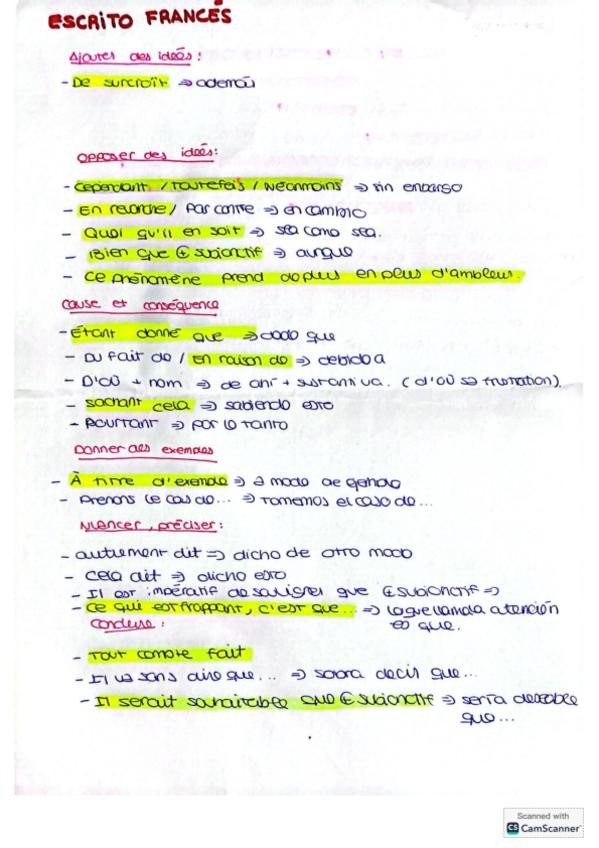 ESCRITO FRANCÉS
Ajouter des idées :
- De surcroît ⇒ además
Opposer des idées:
- Cependant / Toutefois / Néanmoins ⇒ sin embargo
- En revanche / Par contre ⇒ en cambio
- Quoi qu'il en soit ⇒ sea como sea.
- Bien que ⊕ subjonctif ⇒ aunque
- Ce phénomène prend de plus en plus d'ampleur.
Cause et conséquence
- Étant donné que ⇒ dado que
- Du fait de / En raison de ⇒ debido a
- D'où + nom ⇒ de ahí + sustantivo. (d'où sa frustration).
- Sachant cela ⇒ sabiendo esto
- Pourtant ⇒ por lo tanto
Donner des exemples
- À titre d'exemple ⇒ a modo de ejemplo
- Prenons le cas de... ⇒ Tomemos el caso de...
Nuancer, préciser :
- autrement dit ⇒ dicho de otro modo
- Cela dit ⇒ dicho esto
- Il est impératif de souligner que ⊕ subjonctif ⇒
- Ce qui est frappant, c'est que... ⇒ Lo que llama la atención
es que.
Conclure :
- Tout compte fait
- Il va sans dire que... ⇒ sobra decir que...
- Il serait souhaitable que ⊕ subjonctif ⇒ sería deseable
que...
Scanned with
CS CamScanner